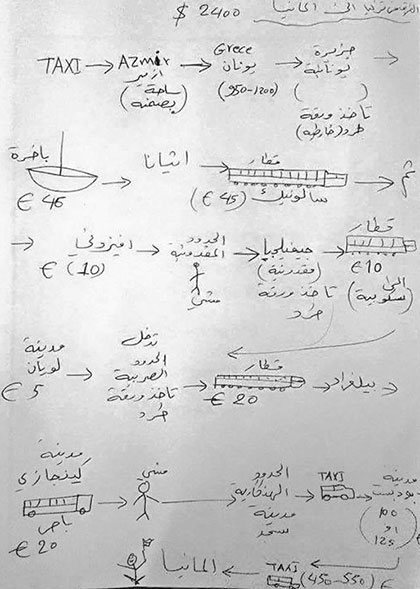 تركيا الى المانيا $ 2400
TAXI → AZmir ازمير ساحة (بصمنه) → Grece يونان (950-1200) → جزيرة يونانية ( ) تأخذ ورقة طرد (خارطيه) →
باخرة € 45 → اثيانا → قطار سالونيك (€ 45) → ثم
→ افيزوني € (10) → الحدود المقدونية مشي → جيفيليجيا (مقدونية) تأخذ ورقة طرد → قطار € 10 الى (سكوبية)
مدينة لويان € 5 → تدخل الحدود الصربية تأخذ ورقة طرد → قطار € 20 → بيلغراد
مدينة كينجازي باص € 20 → مشي → الحدود الهنكارية مدينة → TAXI → مدينة بودبست (100 او 125) €
TAXI (450-550) € → المانيا